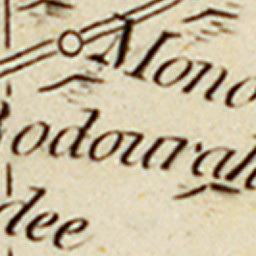 Mono
odourah
dee